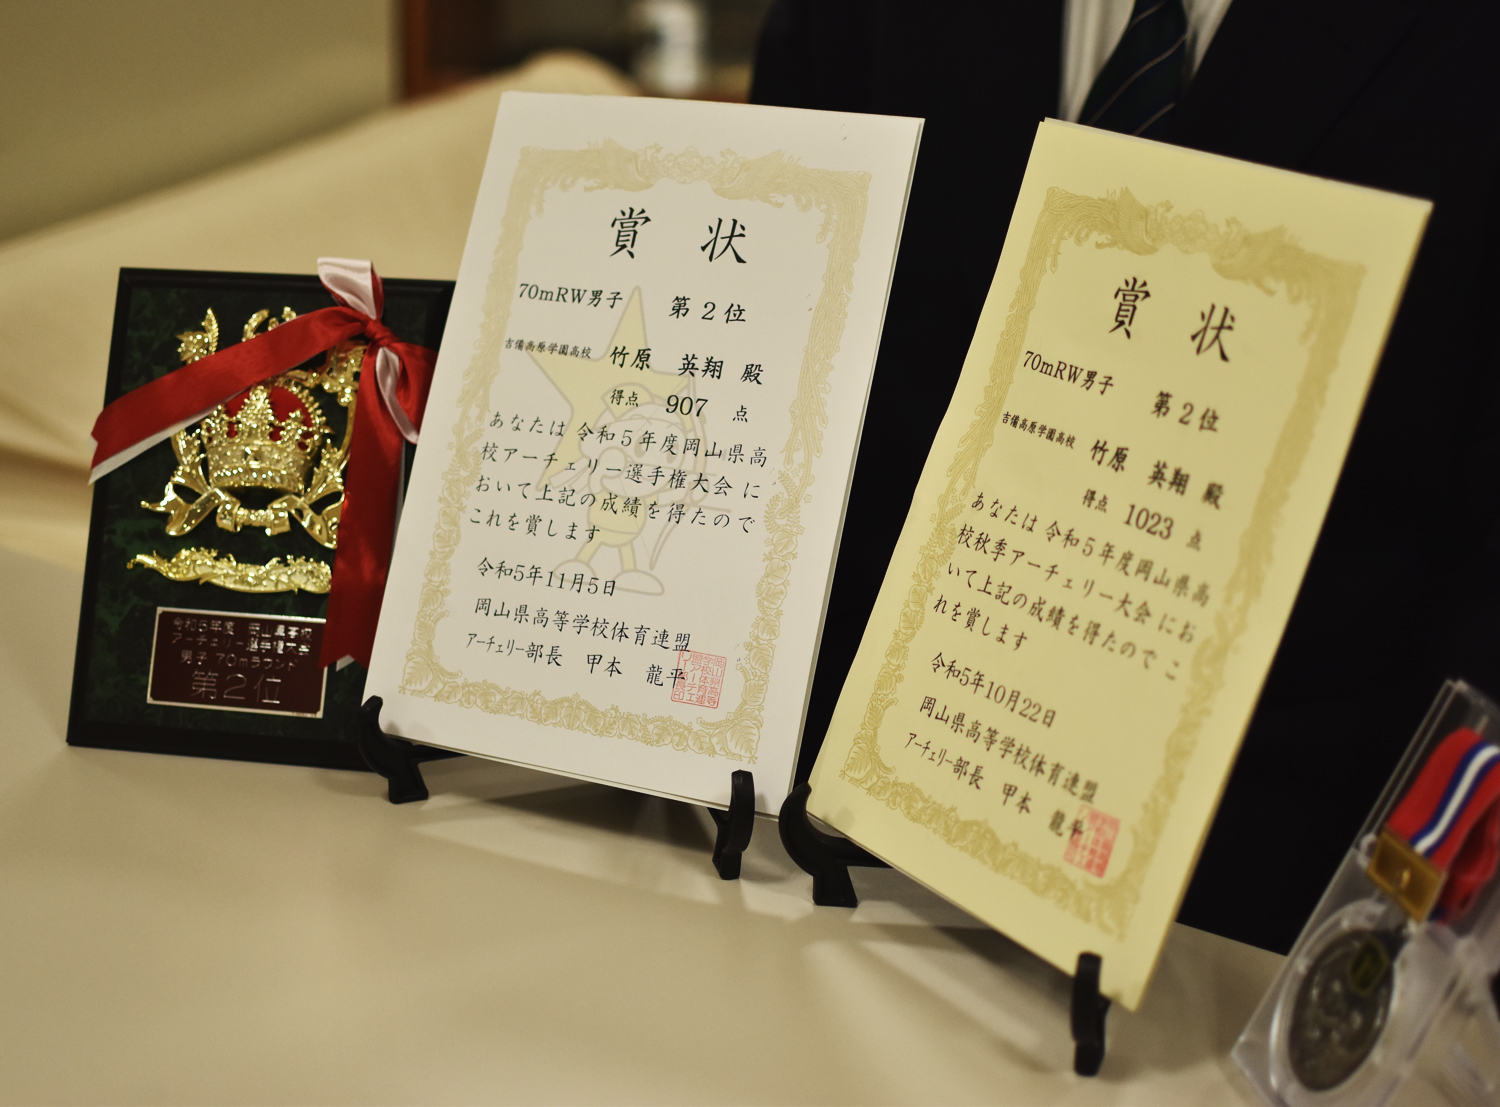 令和5年度 岡山県高校
アーチェリー選手権大会
男子 70mラウンド
第2位
賞 状
70mRW男子 第2位
吉備高原学園高校 竹原 英翔 殿
得点 907 点
あなたは 令和5年度岡山県高
校アーチェリー選手権大会 に
おいて上記の成績を得たので
これを賞します
令和5年11月5日
岡山県高等学校体育連盟
アーチェリー部長 甲本 龍平
賞 状
70mRW男子 第2位
吉備高原学園高校 竹原 英翔 殿
得点 1023 点
あなたは 令和5年度岡山県高
校秋季アーチェリー大会 にお
いて上記の成績を得たので こ
れを賞します
令和5年10月22日
岡山県高等学校体育連盟
アーチェリー部長 甲本 龍平